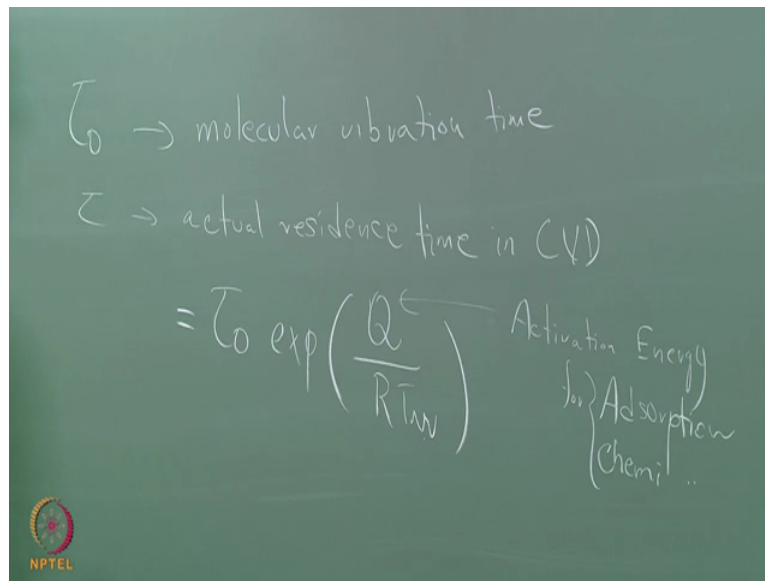 τ₀ → molecular vibration time
τ → actual residence time in CVD
= τ₀ exp(Q/RT_w) ← Activation Energy
for { Adsorption
Chemi " ..
NPTEL